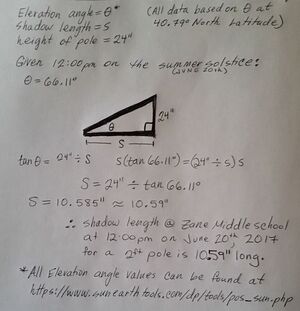 Elevation angle = θ*
(All data based on θ at
shadow length = S
40.79° North Latitude)
height of pole = 24"
Given 12:00pm on the summer solstice:
(JUNE 20th)
θ = 66.11°
24"
θ
S
tanθ = 24" ÷ S
S(tan 66.11°) = (24" ÷ S) S
S = 24" ÷ tan 66.11°
S = 10.585" ≈ 10.59"
∴ shadow length @ Zane Middle school
at 12:00pm on June 20th, 2017
for a 2ft pole is 10.59" long.
*All Elevation angle values can be found at
https://www.sunearthtools.com/dp/tools/pos_sun.php